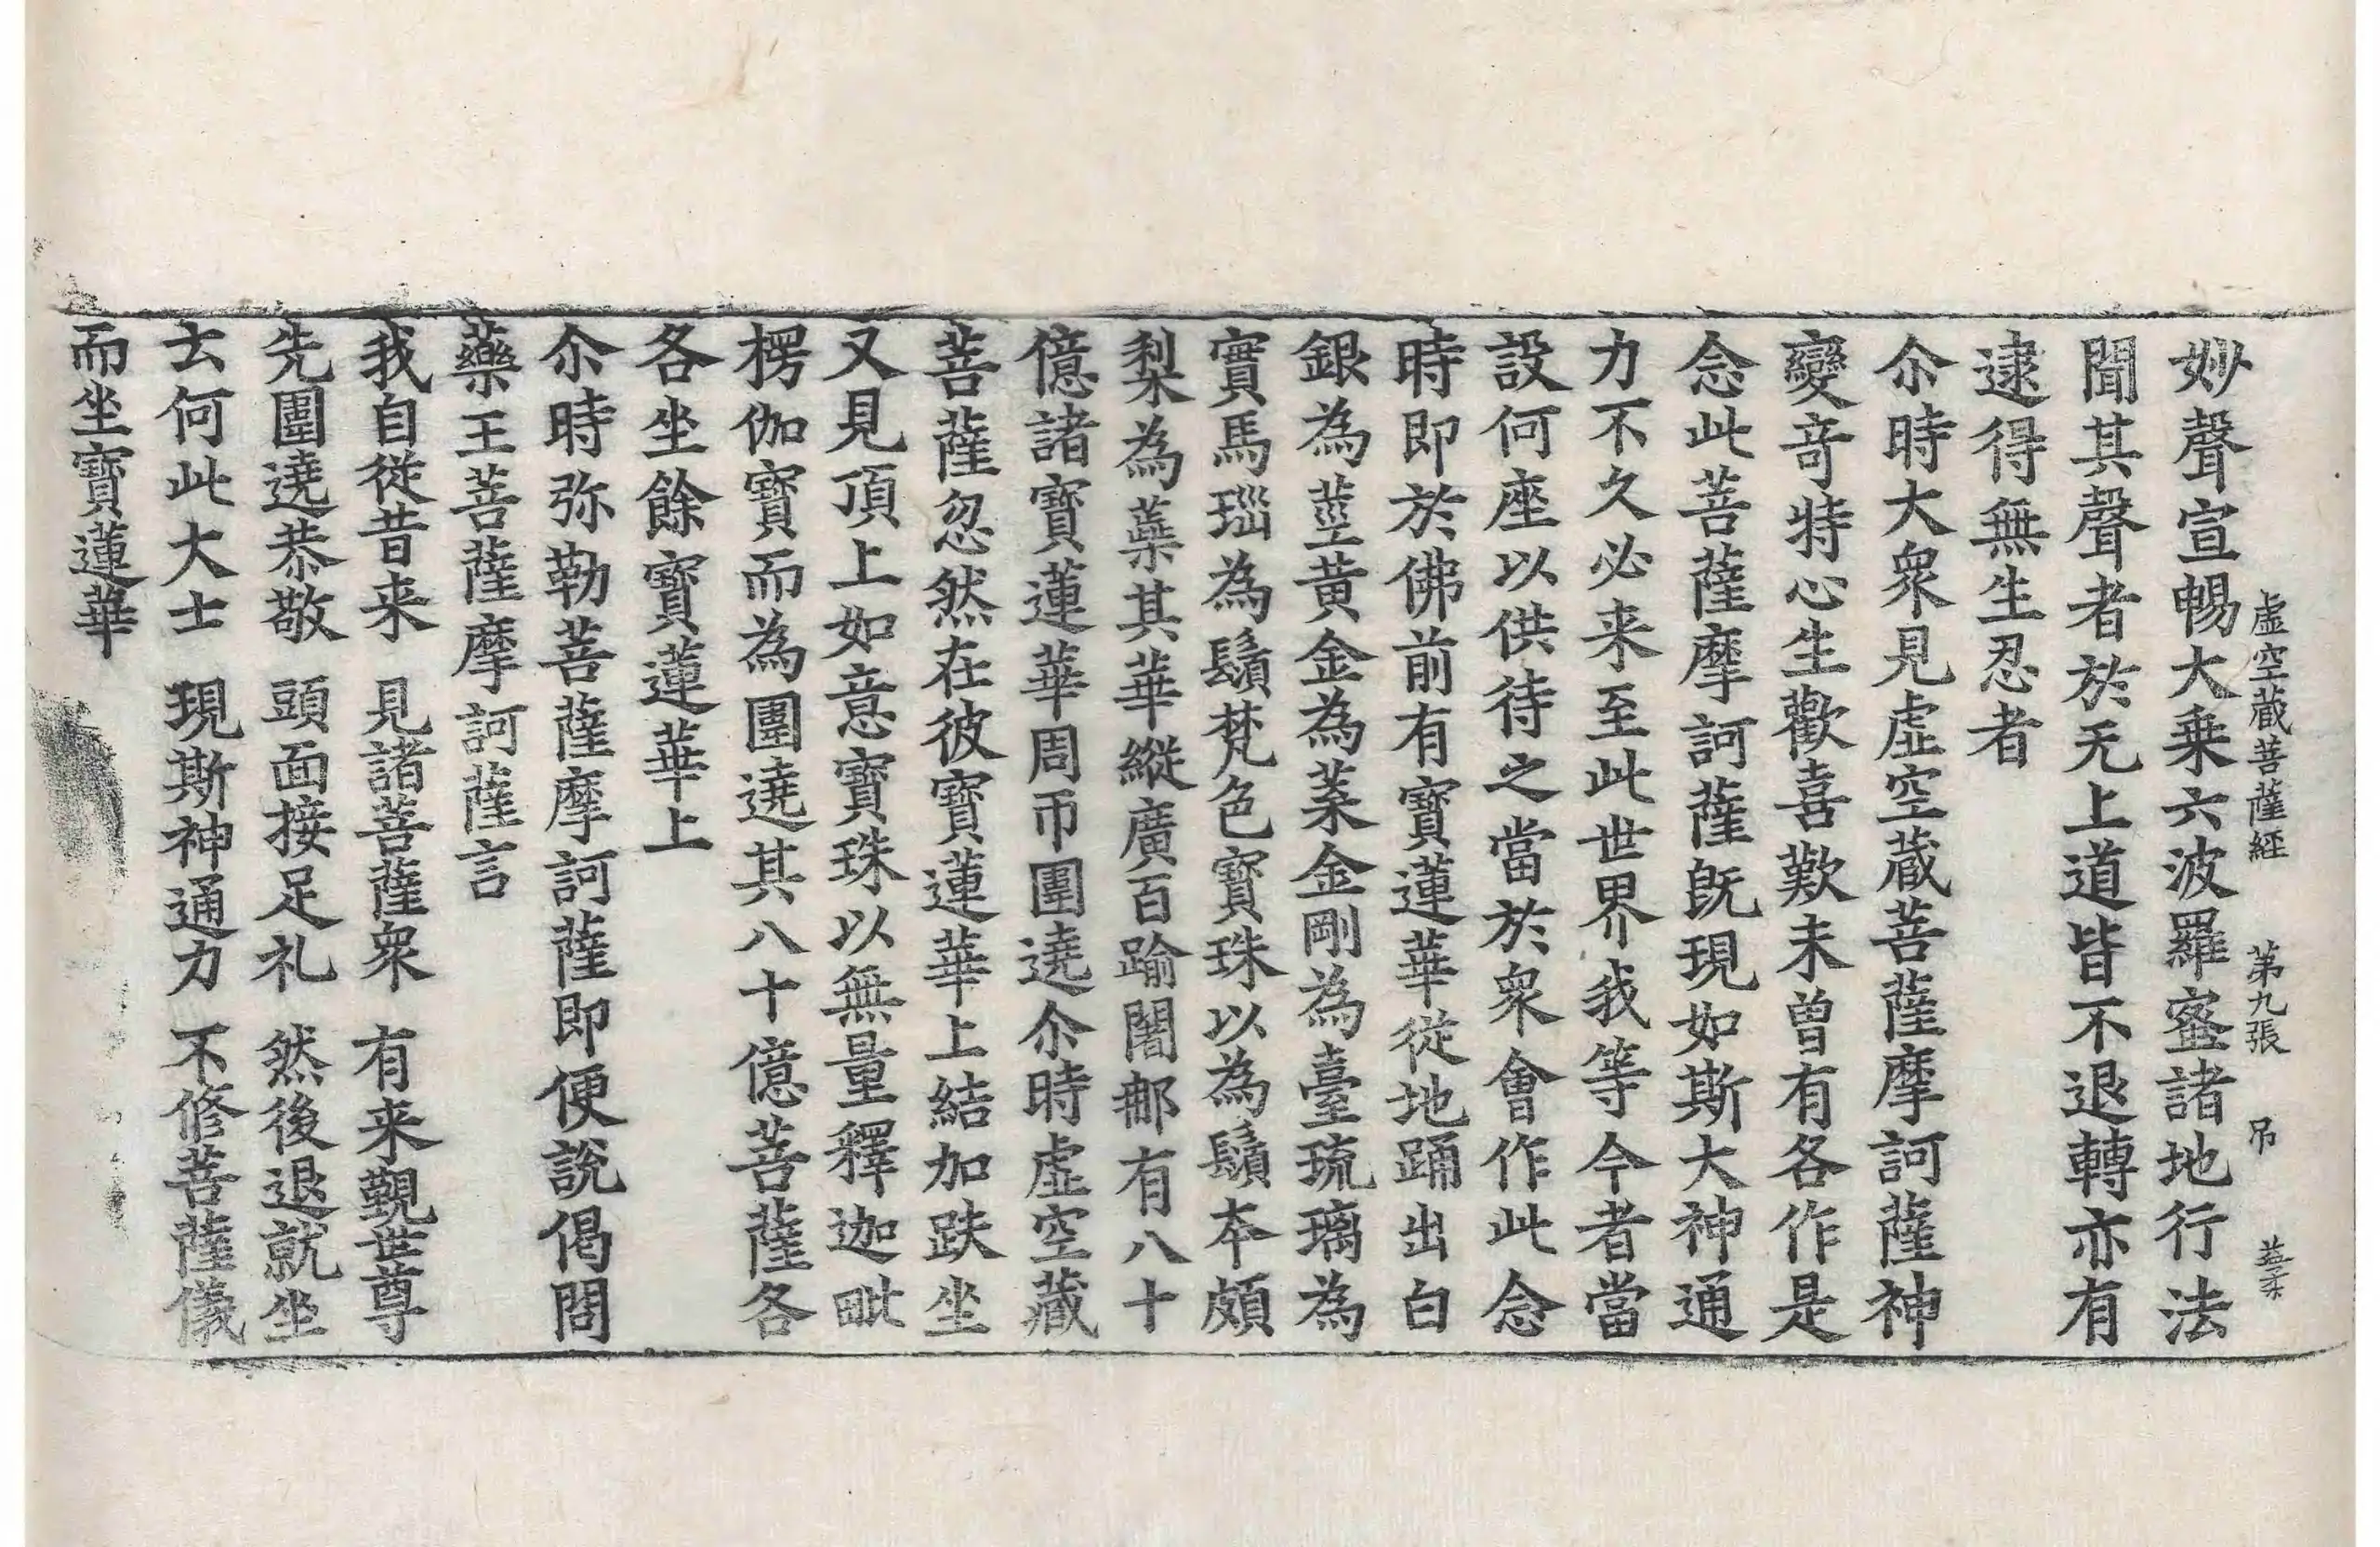 虛空藏菩薩經　第九張　吊
妙聲宣暢大乗六波羅蜜諸地行法
聞其聲者於无上道皆不退轉亦有
逮得無生忍者
尒時大衆見虛空藏菩薩摩訶薩神
變竒特心生歡喜歎未曽有各作是
念此菩薩摩訶薩旣現如斯大神通
力不久必来至此世界我等今者當
設何座以供待之當於衆會作此念
時即於佛前有寶蓮華從地踊出白
銀為莖黃金為葉金剛為臺琉璃為
實馬瑙為鬚梵色寶珠以為鬚本頗
梨為蘂其華縱廣百踰闍𨚗有八十
億諸寶蓮華周帀圍遶尒時虛空藏
菩薩忽然在彼寶蓮華上結加趺坐
又見頂上如意寶珠以無量釋迦毗
楞伽寶而為圍遶其八十億菩薩各
各坐餘寶蓮華上
尒時弥勒菩薩摩訶薩即便說偈問
藥王菩薩摩訶薩言
我自從昔来　見諸菩薩衆　有来覲世尊
先圍遶恭敬　頭面接足礼　然後退就坐
云何此大士　現斯神通力　不修菩薩儀
而坐寶蓮華